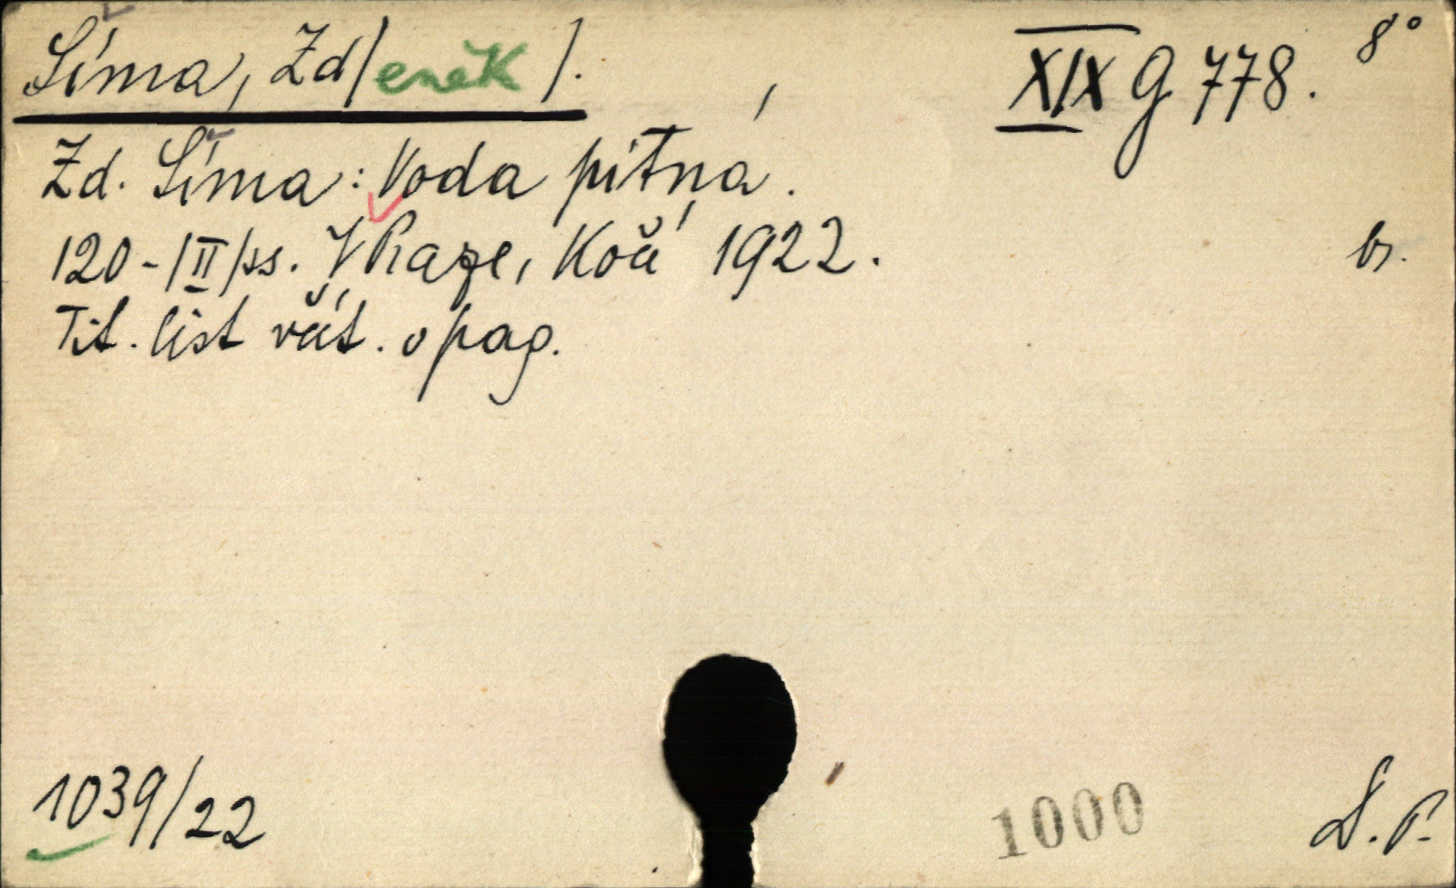 Šíma, Zd/eněk/.
XIX G 778. 8°
Zd. Šíma: Voda pitná.
120-/II/ss. V Praze, Kočí 1922. br.
Tit. list včít. v pag.
1039/22
1000
D. P.